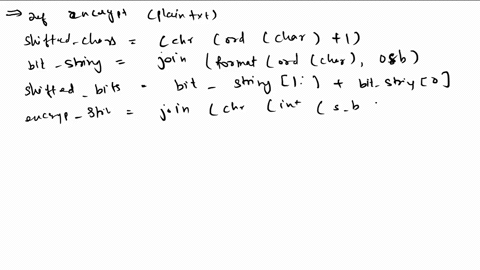 ⇒ def encrypt (plaintxt)
shifted_chars = (chr (ord (char) + 1)
bit_string = join (format (ord (char), 08b)
shifted_bits = bit_string [1:] + bit_string [0]
encryp_str = join (chr (int (s_b